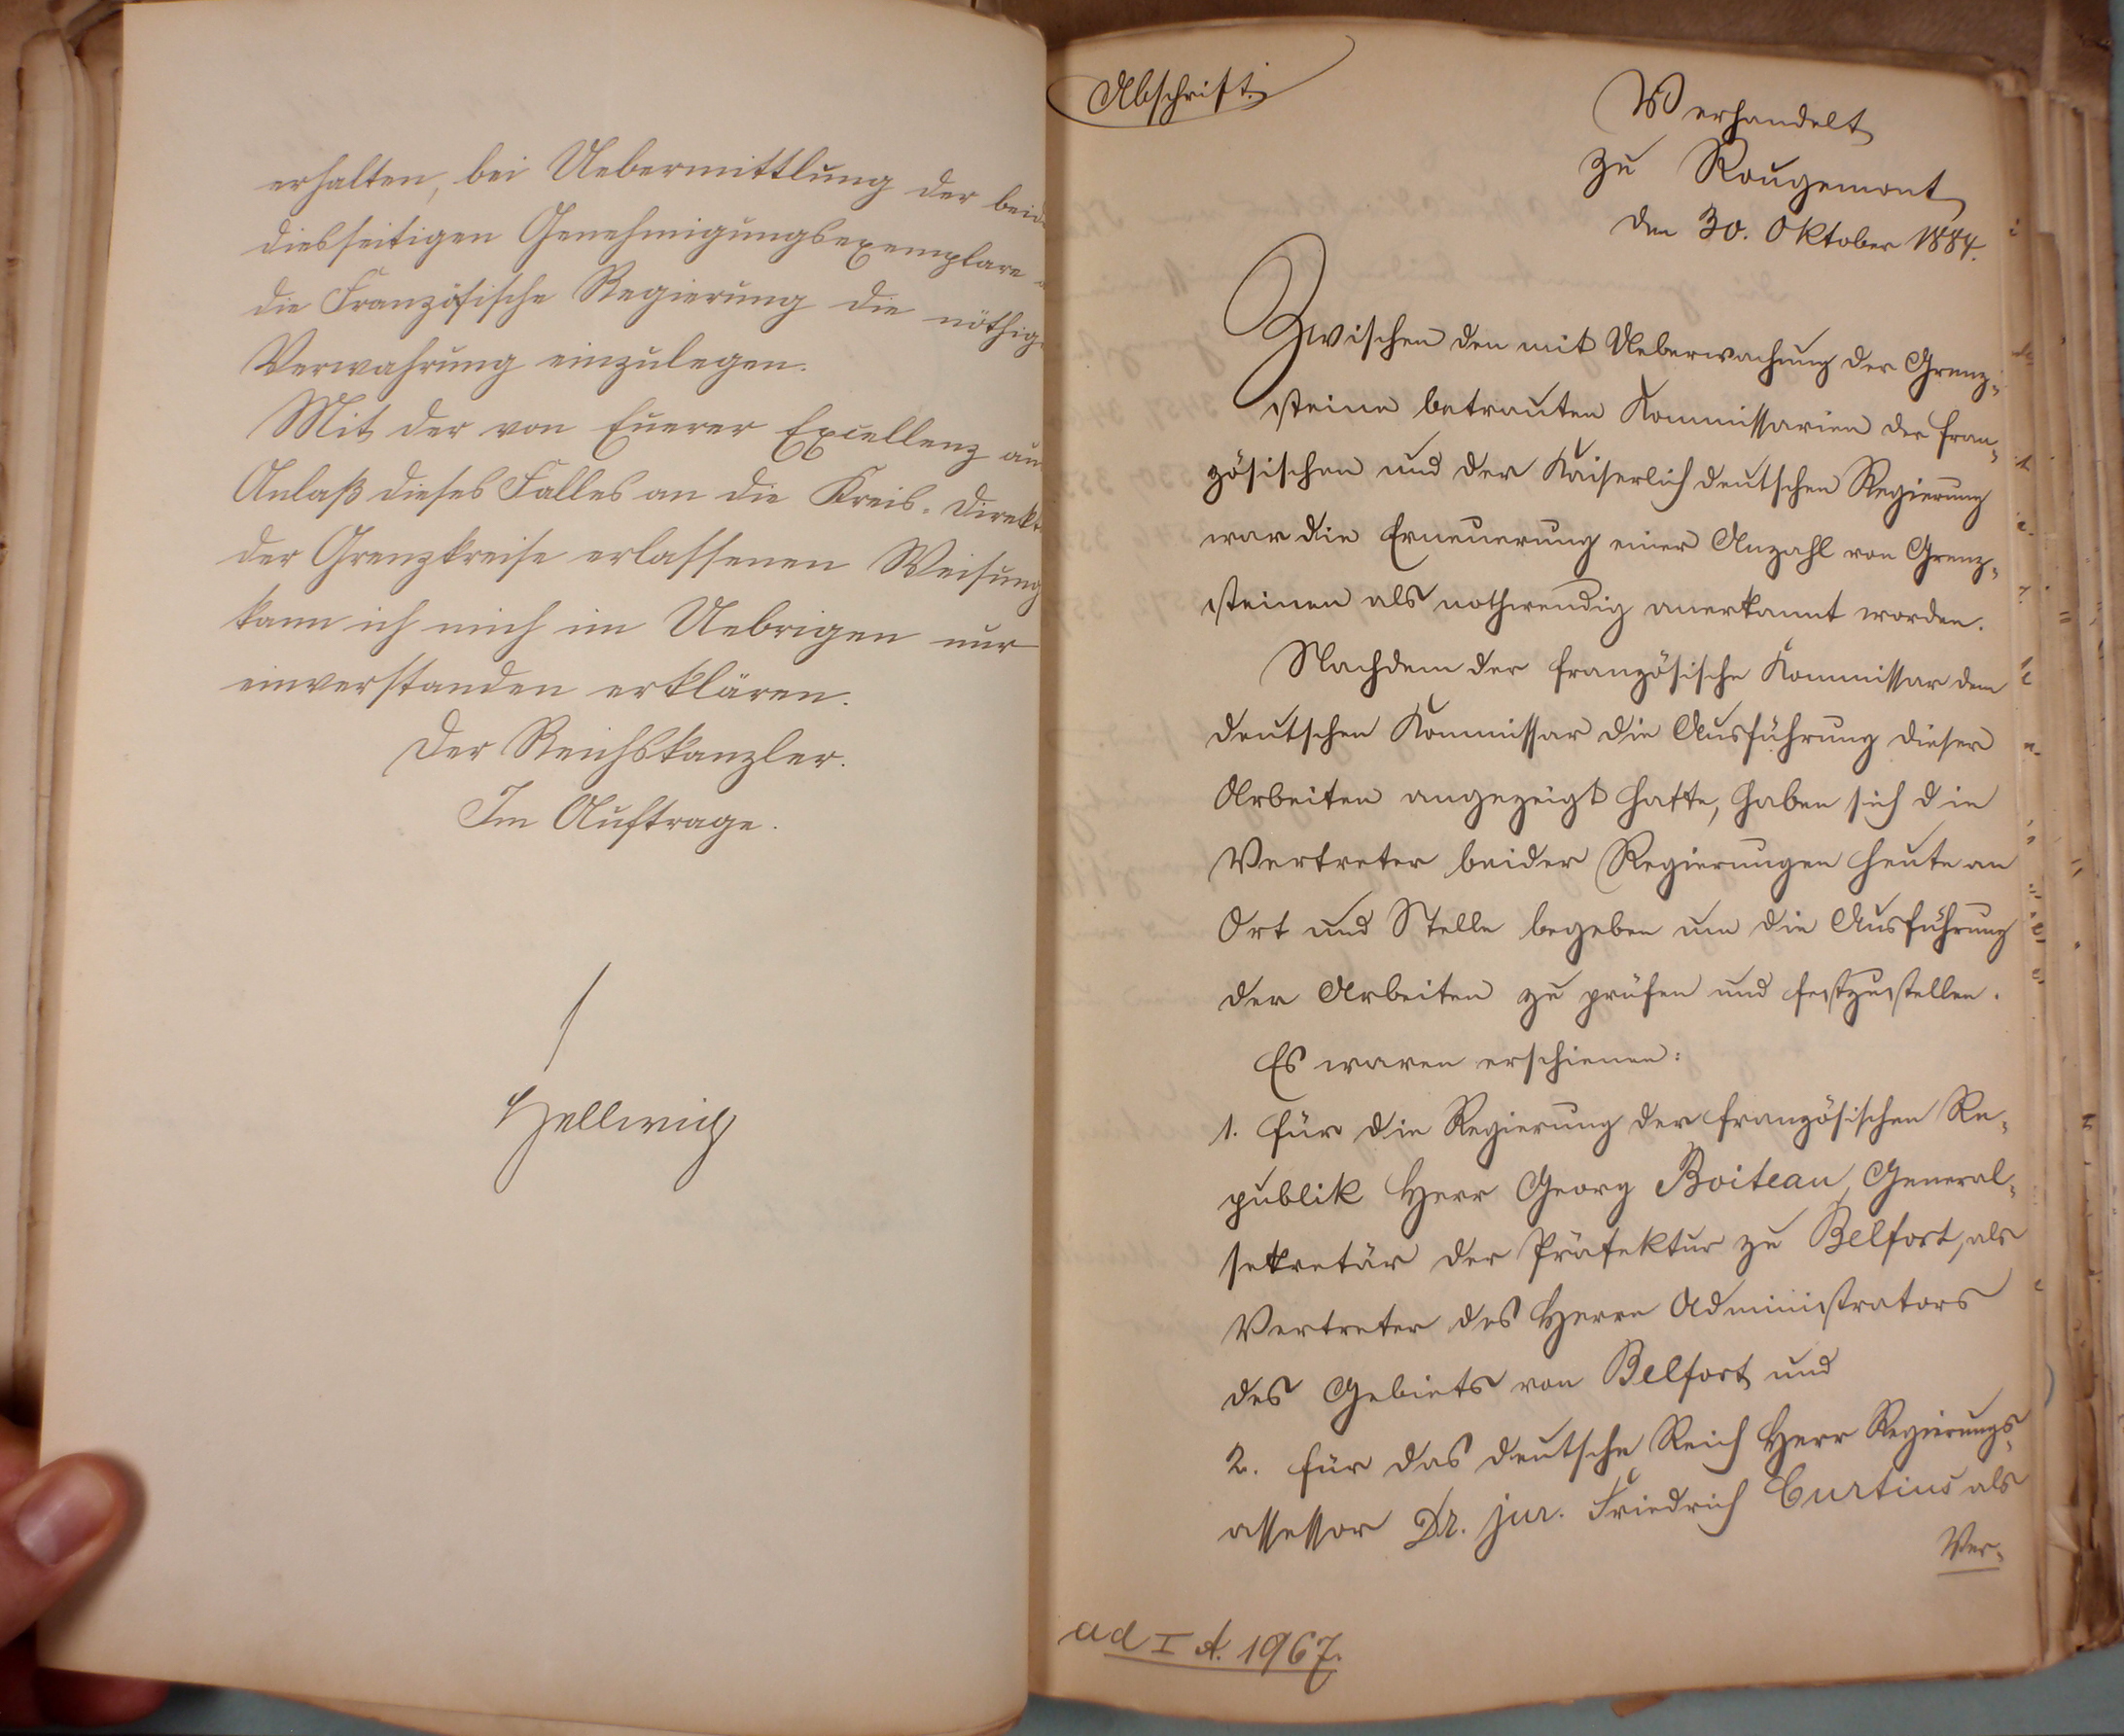 erhalten, bei Uebermittlung der
diesseitigen Genehmigungsexemplare
die Französische Regierung die
Verwahrung einzulegen.
Mit der von Euerer Excellenz
Anlaß dieses Falles an die Kreis-
der Grenzkreise erlassenen Weisung
kann ich mich im Uebrigen nur
einverstanden erklären.
Der Reichskanzler.
Im Auftrage.
Hellwig
Abschrift.
Verhandelt
zu Rougemont
den 30. Oktober 1884.
Zwischen den mit Ueberwachung der Grenz-
steine betrauten Kommissarien der fran-
zösischen und der Kaiserlich deutschen Regierung
war die Erneuerung einer Anzahl von Grenz-
steinen als nothwendig anerkannt worden.
Nachdem der französische Kommissar dem
deutschen Kommissar die Ausführung dieser
Arbeiten angezeigt hatte, haben sich die
Vertreter beider Regierungen heute an
Ort und Stelle begeben um die Ausführung
der Arbeiten zu prüfen und festzustellen.
Es waren erschienen:
1. für die Regierung der französischen Re-
publik Herr Georg Boiteau, General-
sekretär der Präfektur zu Belfort, als
Vertreter des Herrn Administrators
des Gebiets von Belfort und
2. für das deutsche Reich Herr Regierungs-
assessor Dr. jur. Friedrich Curtius als
Ver-
ad I A. 1967.